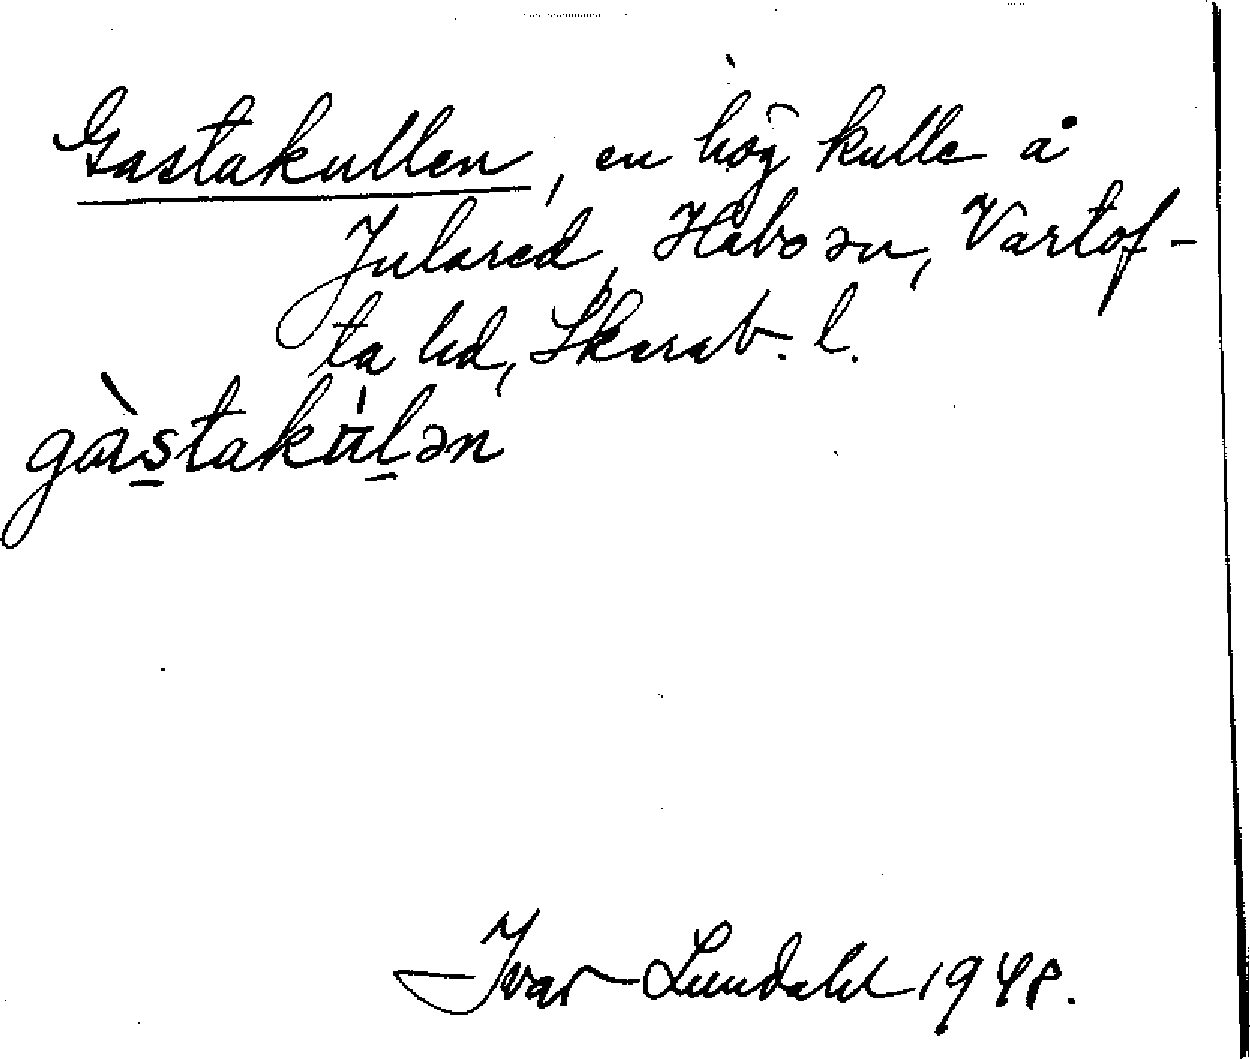 Gastakullen, en hög kulle å
Julared, Habo sn, Vartof-
ta hd, Skarab. l.
gàstakulən
Ivar Lundahl 1948.